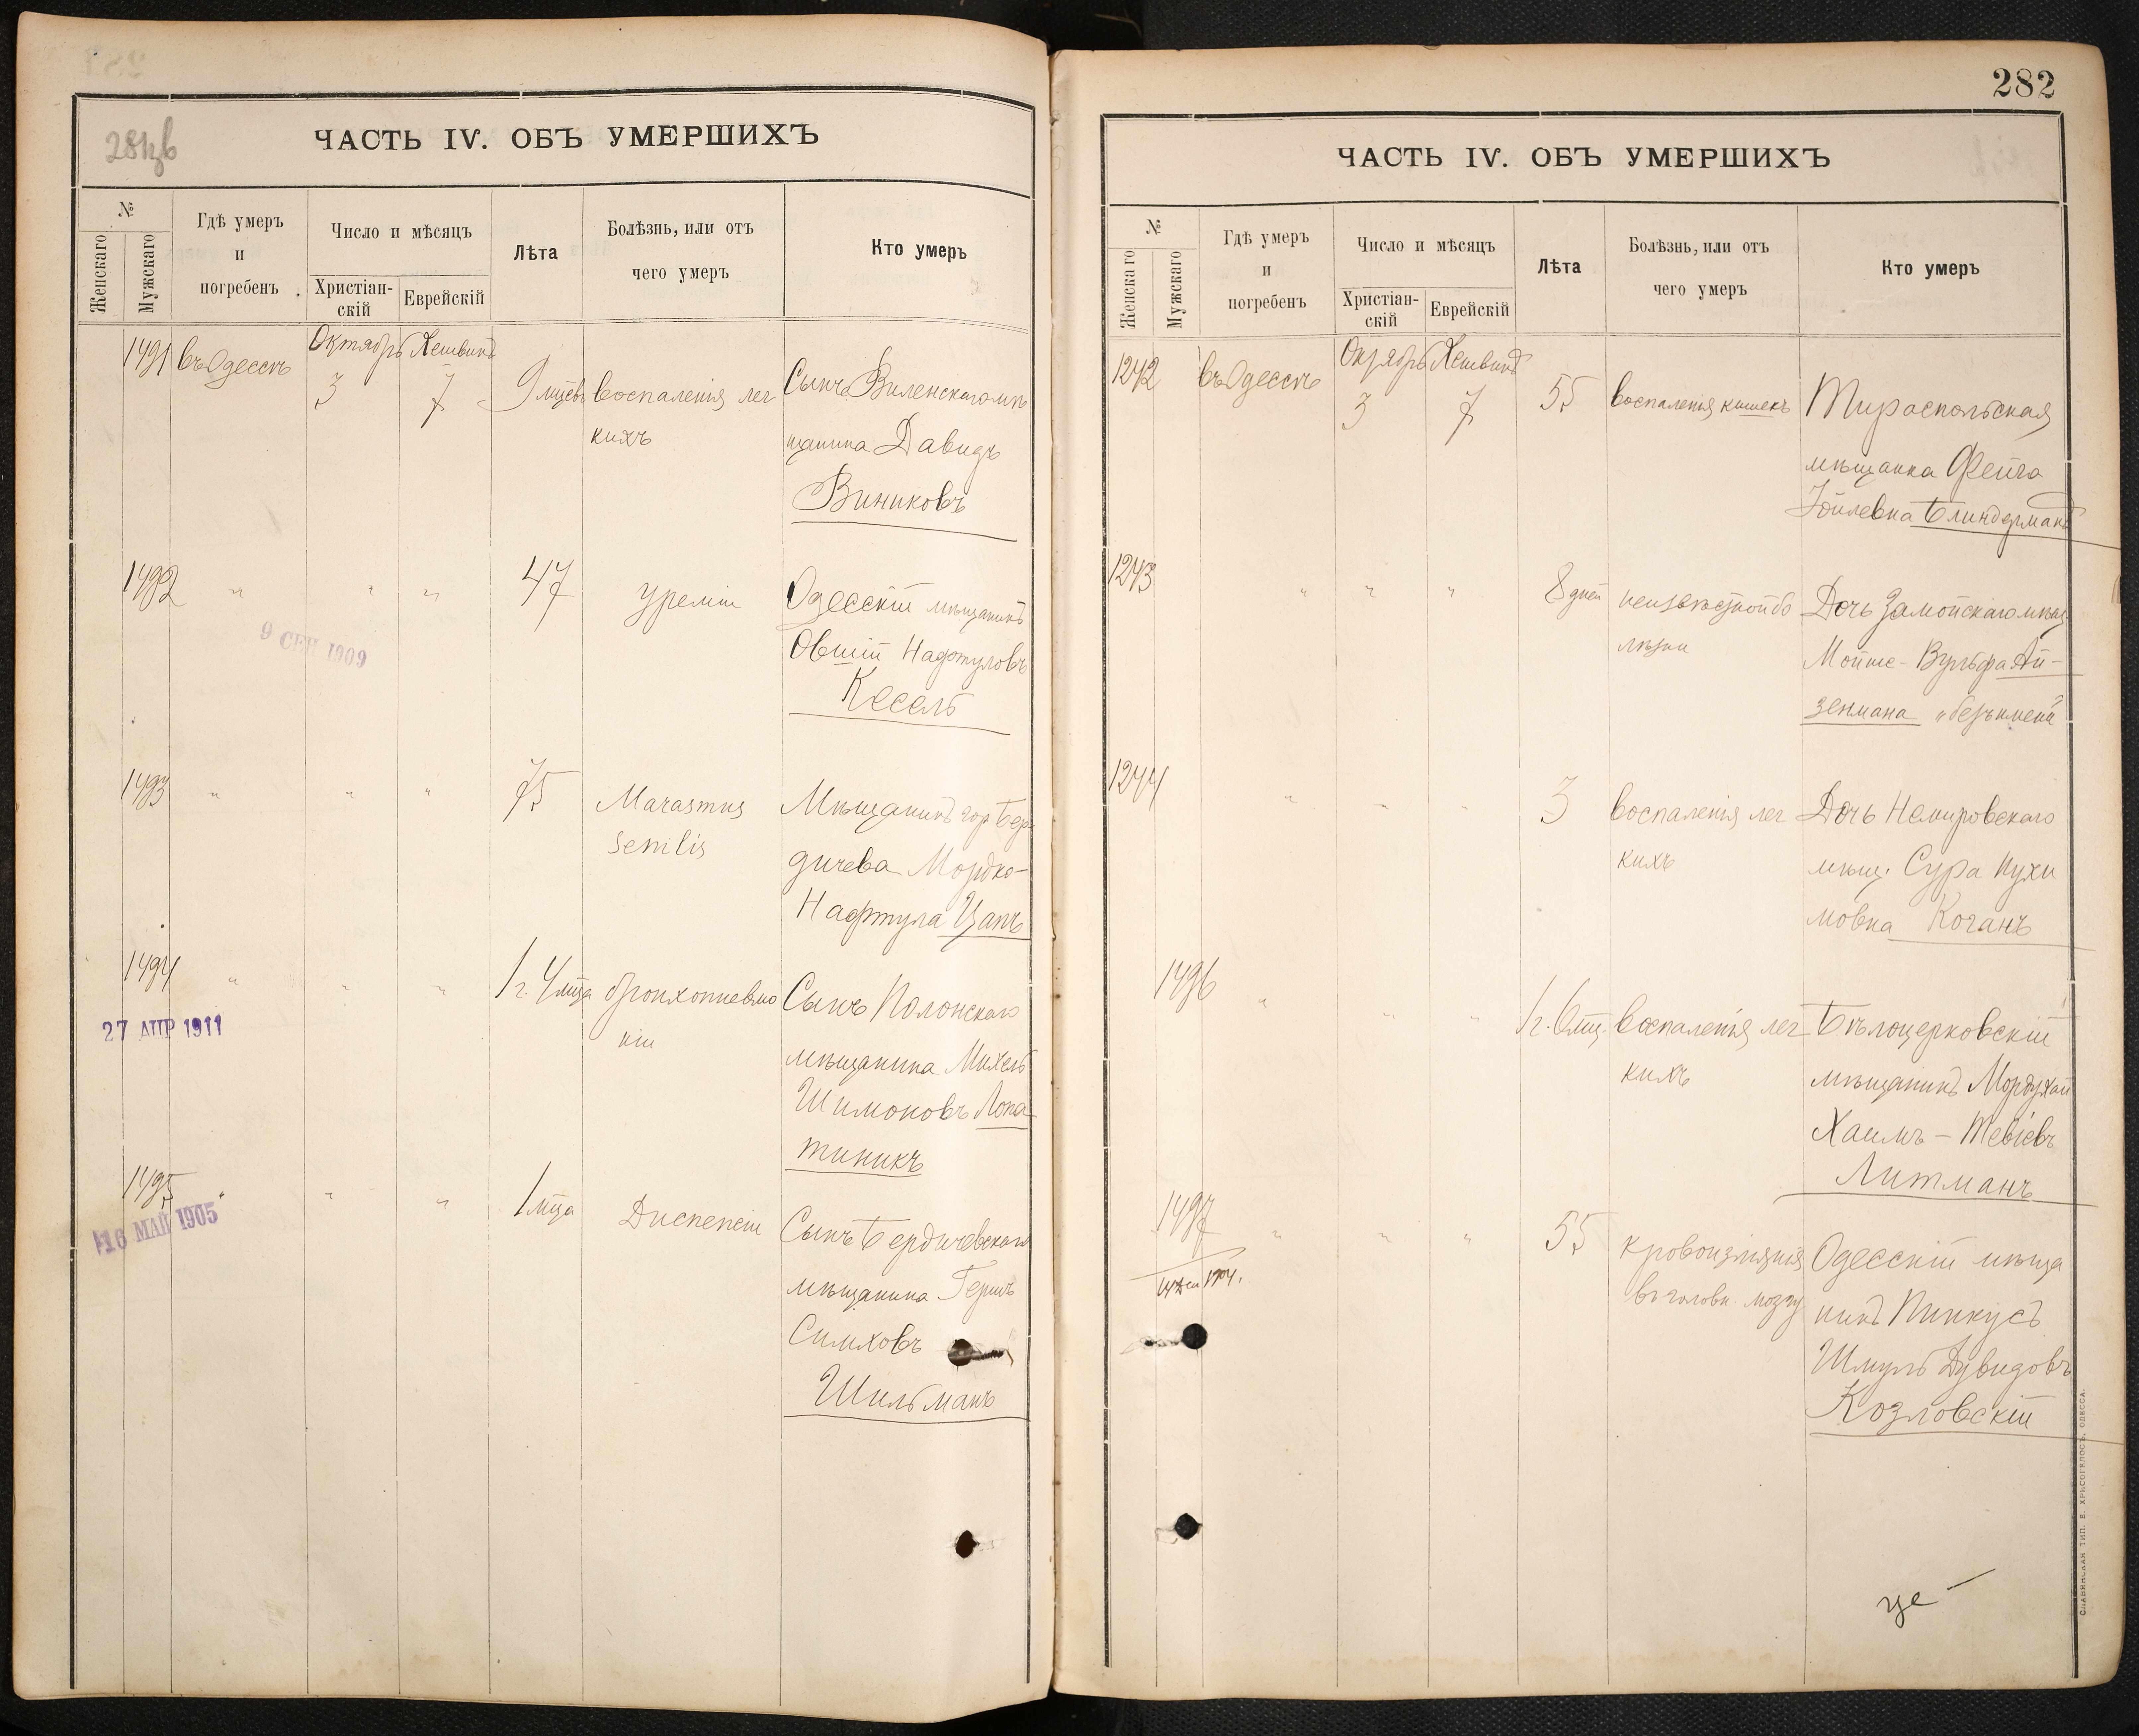 281зв
ЧАСТЬ IV. ОБЪ УМЕРШИХЪ
№
Женскаго
Мужскаго
Гдѣ умеръ
и
погребенъ
Число и мѣсяцъ
Христіан-
скій
Еврейскій
Лѣта
Болѣзнь, или отъ
чего умеръ
Кто умеръ
1491 въ Одессѣ Октябрь Хешвинъ
3 7 9 мцевъ воспаленія лег
кихъ
Сынъ Виленскаго мѣ
щанина Давидъ
Виниковъ
1492 " " " 47 уреміи Одесскій мѣщанинъ
Овшій Нафтуловъ
Кесель
9 СЕН 1909
1493 " " " 75 Marasmus
senilis
Мѣщанинъ гор. Бер
дичева Мордко-
Нафтула Цапъ
1494 " " " 1 г. 4 мца бронхопневмо
ніи
Сынъ Полонскаго
мѣщанина Михель
Шимоновъ Лопа
тникъ
27 АПР 1911
1495 " " " 1 мца Диспепсіи Сынъ Бердичевскаго
мѣщанина Гершъ
Симховъ
Шильманъ
16 МАЙ 1905
282
ЧАСТЬ IV. ОБЪ УМЕРШИХЪ
№
Женскаго
Мужскаго
Гдѣ умеръ
и
погребенъ
Число и мѣсяцъ
Христіан-
скій
Еврейскій
Лѣта
Болѣзнь, или отъ
чего умеръ
Кто умеръ
1242 въ Одессѣ Октябрь Хешвинъ
3 7 55 воспаленія кишекъ Тираспольская
мѣщанка Фейга
Іойлевна Блиндерманъ
1243 " " " 8 дней неизвѣстной бо
лѣзни
Дочь Замойскаго мѣщ.
Мойше-Вульфа Ай-
зенмана „безъ имени"
1244 " " " 3 воспаленія лег
кихъ
Дочь Немировскаго
мѣщ. Сура Нухи
мовна Коганъ
1496 " " " 1 г. 6 мц. воспаленія лег
кихъ
Бѣлоцерковскій
мѣщанинъ Мордухай
Хаимъ-Тевіевъ
Литманъ
1497 " " " 55 кровоизліянія
въ головн. мозгу
Одесскій мѣща
нинъ Пинкусъ
Шмуль Дувидовъ
Козловскій
1904.
СЛАВЯНСКАЯ ТИП. Е. ХРИСОГЕЛОСЪ, ОДЕССА.